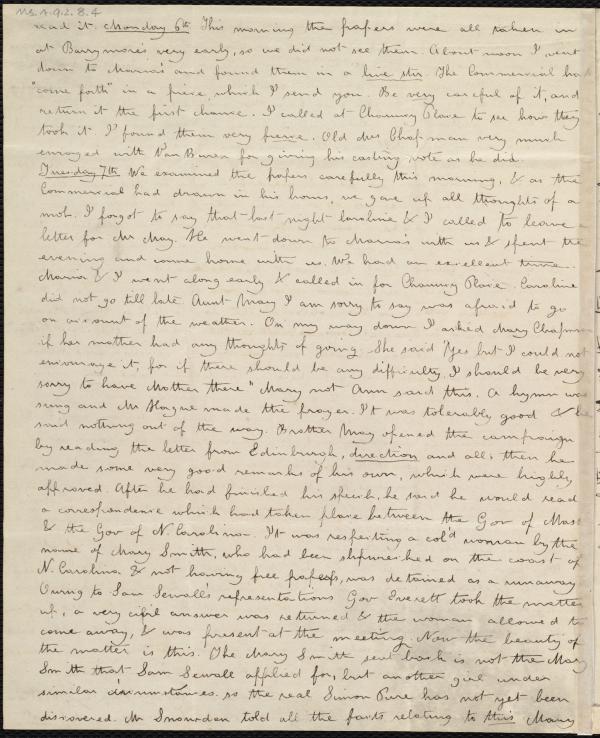 Ms.A.9.2.8.4
read it. Monday 6th This morning the papers were all taken in
at Barrymore's very early, so we did not see them. About noon I went
down to Maria's and found them in a live stir. The Commercial had
"come forth" in a piece which I send you. Be very careful of it, and
return it the first chance. I called at Chauncy Place to see how they
took it. I found them very fierce. Old Mrs Chapman very much
enraged with Van Buren for giving his casting vote as he did.
Tuesday 7th. We examined the papers carefully this morning, & as the
Commercial had drawn in his horns, we gave up all thoughts of a
mob. I forgot to say that last night Caroline & I called to leave a
letter for Mr May. He went down to Maria's with us & spent the
evening and came home with us. We had an excellent time.
Maria & I went along early & called in for Chauncy Place. Caroline
did not go till late. Aunt Mary I am sorry to say was afraid to go
on account of the weather. On my way down I asked Mary Chapman
if her mother had any thoughts of going. She said "Yes but I could not
encourage it, for if there should be any difficulty, I should be very
sorry to have Mother there" Mary not Ann said this. A hymn was
sung and Mr Hague made the prayer. It was tolerably good & he
said nothing out of the way. Brother May opened the campaign
by reading the letter from Edinburgh, direction and all, then he
made some very good remarks of his own, which were highly
approved. After he had finished his speech, he said he would read
a correspondence which had taken place between the Gov of Mass
& the Gov of N. Carolina. It was respecting a col'd woman by the
name of Mary Smith, who had been shipwrecked on the coast of
N. Carolina & not having free papers, was detained as a runaway
Owing to Sam Sewall's representations Gov Everett took the matter
up, a very civil answer was returned & the woman allowed to
come away, & was present at the meeting. Now the beauty of
the matter is this. The Mary Smith sent back is not the Mary
Smith that Sam Sewall applied for, but another girl under
similar circumstances. so the real Simon Pure has not yet been
discovered. Mr Snowden told all the facts relating to this Mary